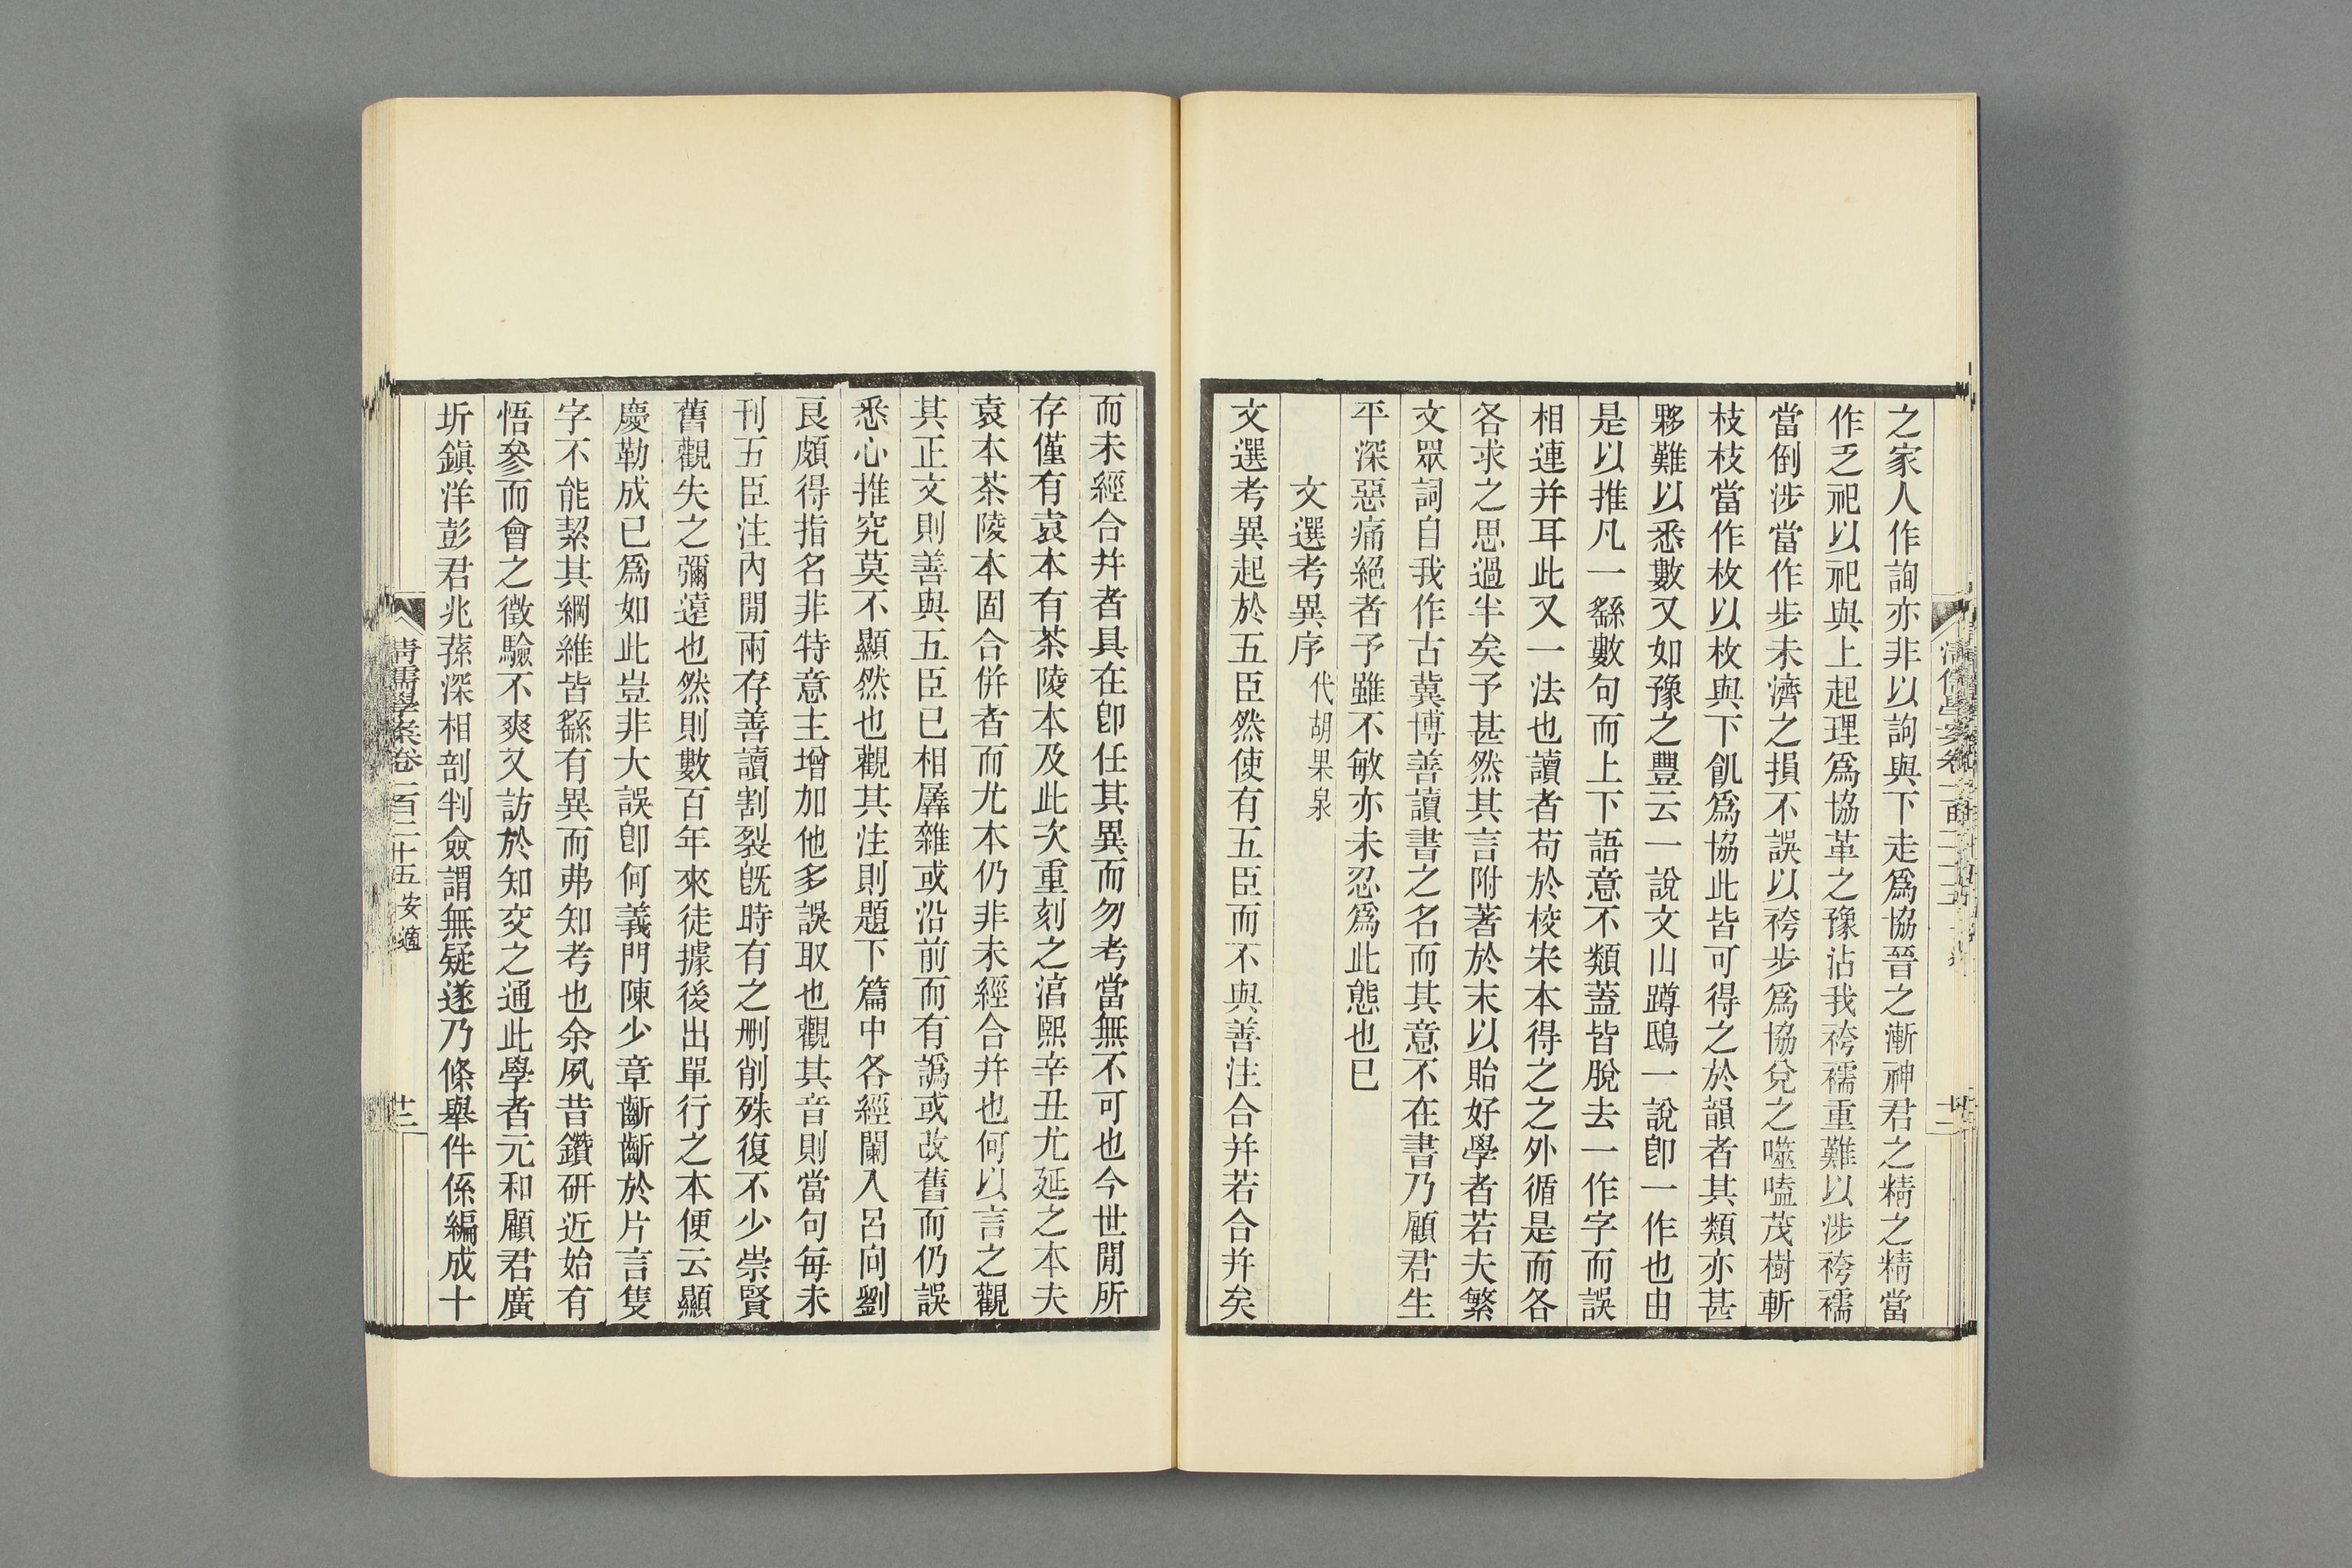 之家人作詢亦非以詢與下走爲協晉之漸神君之精之精當
作乏祀以祀與上起理爲協革之豫沾我袴襦重難以涉袴襦
當倒涉當作步未濟之損不誤以袴步爲協兌之噬嗑茂樹斬
枝枝當作枚以枚與下飢爲協此皆可得之於韻者其類亦甚
夥難以悉數又如豫之豐云一說文山蹲鴟一說卽一作也由
是以推凡一繇數句而上下語意不類蓋皆脫去一作字而誤
相連并耳此又一法也讀者苟於校宋本得之之外循是而各
各求之思過半矣予甚然其言附著於末以貽好學者若夫繁
文眾詞自我作古冀博善讀書之名而其意不在書乃顧君生
平深惡痛絕者予雖不敏亦未忍爲此態也已
文選考異序 代胡果泉
文選考異起於五臣然使有五臣而不與善注合并若合并矣
而未經合并者具在卽任其異而勿考當無不可也今世閒所
存僅有袁本有茶陵本及此次重刻之湻熙辛丑尤延之本夫
袁本茶陵本固合併者而尤本仍非未經合并也何以言之觀
其正文則善與五臣已相羼雜或沿前而有譌或改舊而仍誤
悉心推究莫不顯然也觀其注則題下篇中各經闌入呂向劉
良頗得指名非特意主增加他多誤取也觀其音則當句每未
刊五臣注內閒兩存善讀割裂既時有之刪削殊復不少崇賢
舊觀失之彌遠也然則數百年來徒據後出單行之本便云顯
慶勒成已爲如此豈非大誤卽何義門陳少章齗齗於片言隻
字不能絜其綱維皆繇有異而弗知考也余夙昔鑽研近始有
悟參而會之徵驗不爽又訪於知交之通此學者元和顧君廣
圻鎮洋彭君兆蓀深相剖判僉謂無疑遂乃條舉件係編成十
清儒學案卷一百二十五 安適